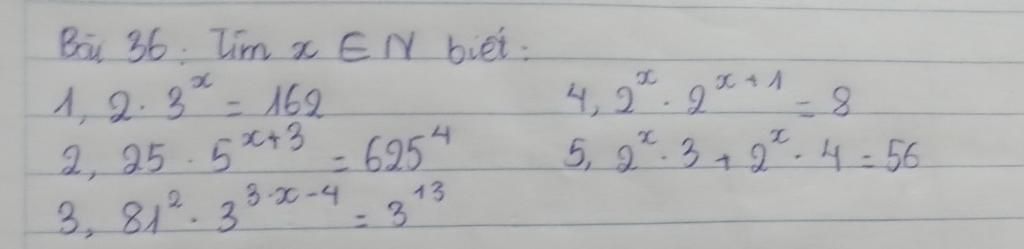 Bài 36: Tìm x ∈ N biết:
1, 2 · 3^x = 162
4, 2^x · 2^{x+1} = 8
2, 25 · 5^{x+3} = 625^4
5, 2^x · 3 + 2^x · 4 = 56
3, 81^2 · 3^{3·x-4} = 3^{13}